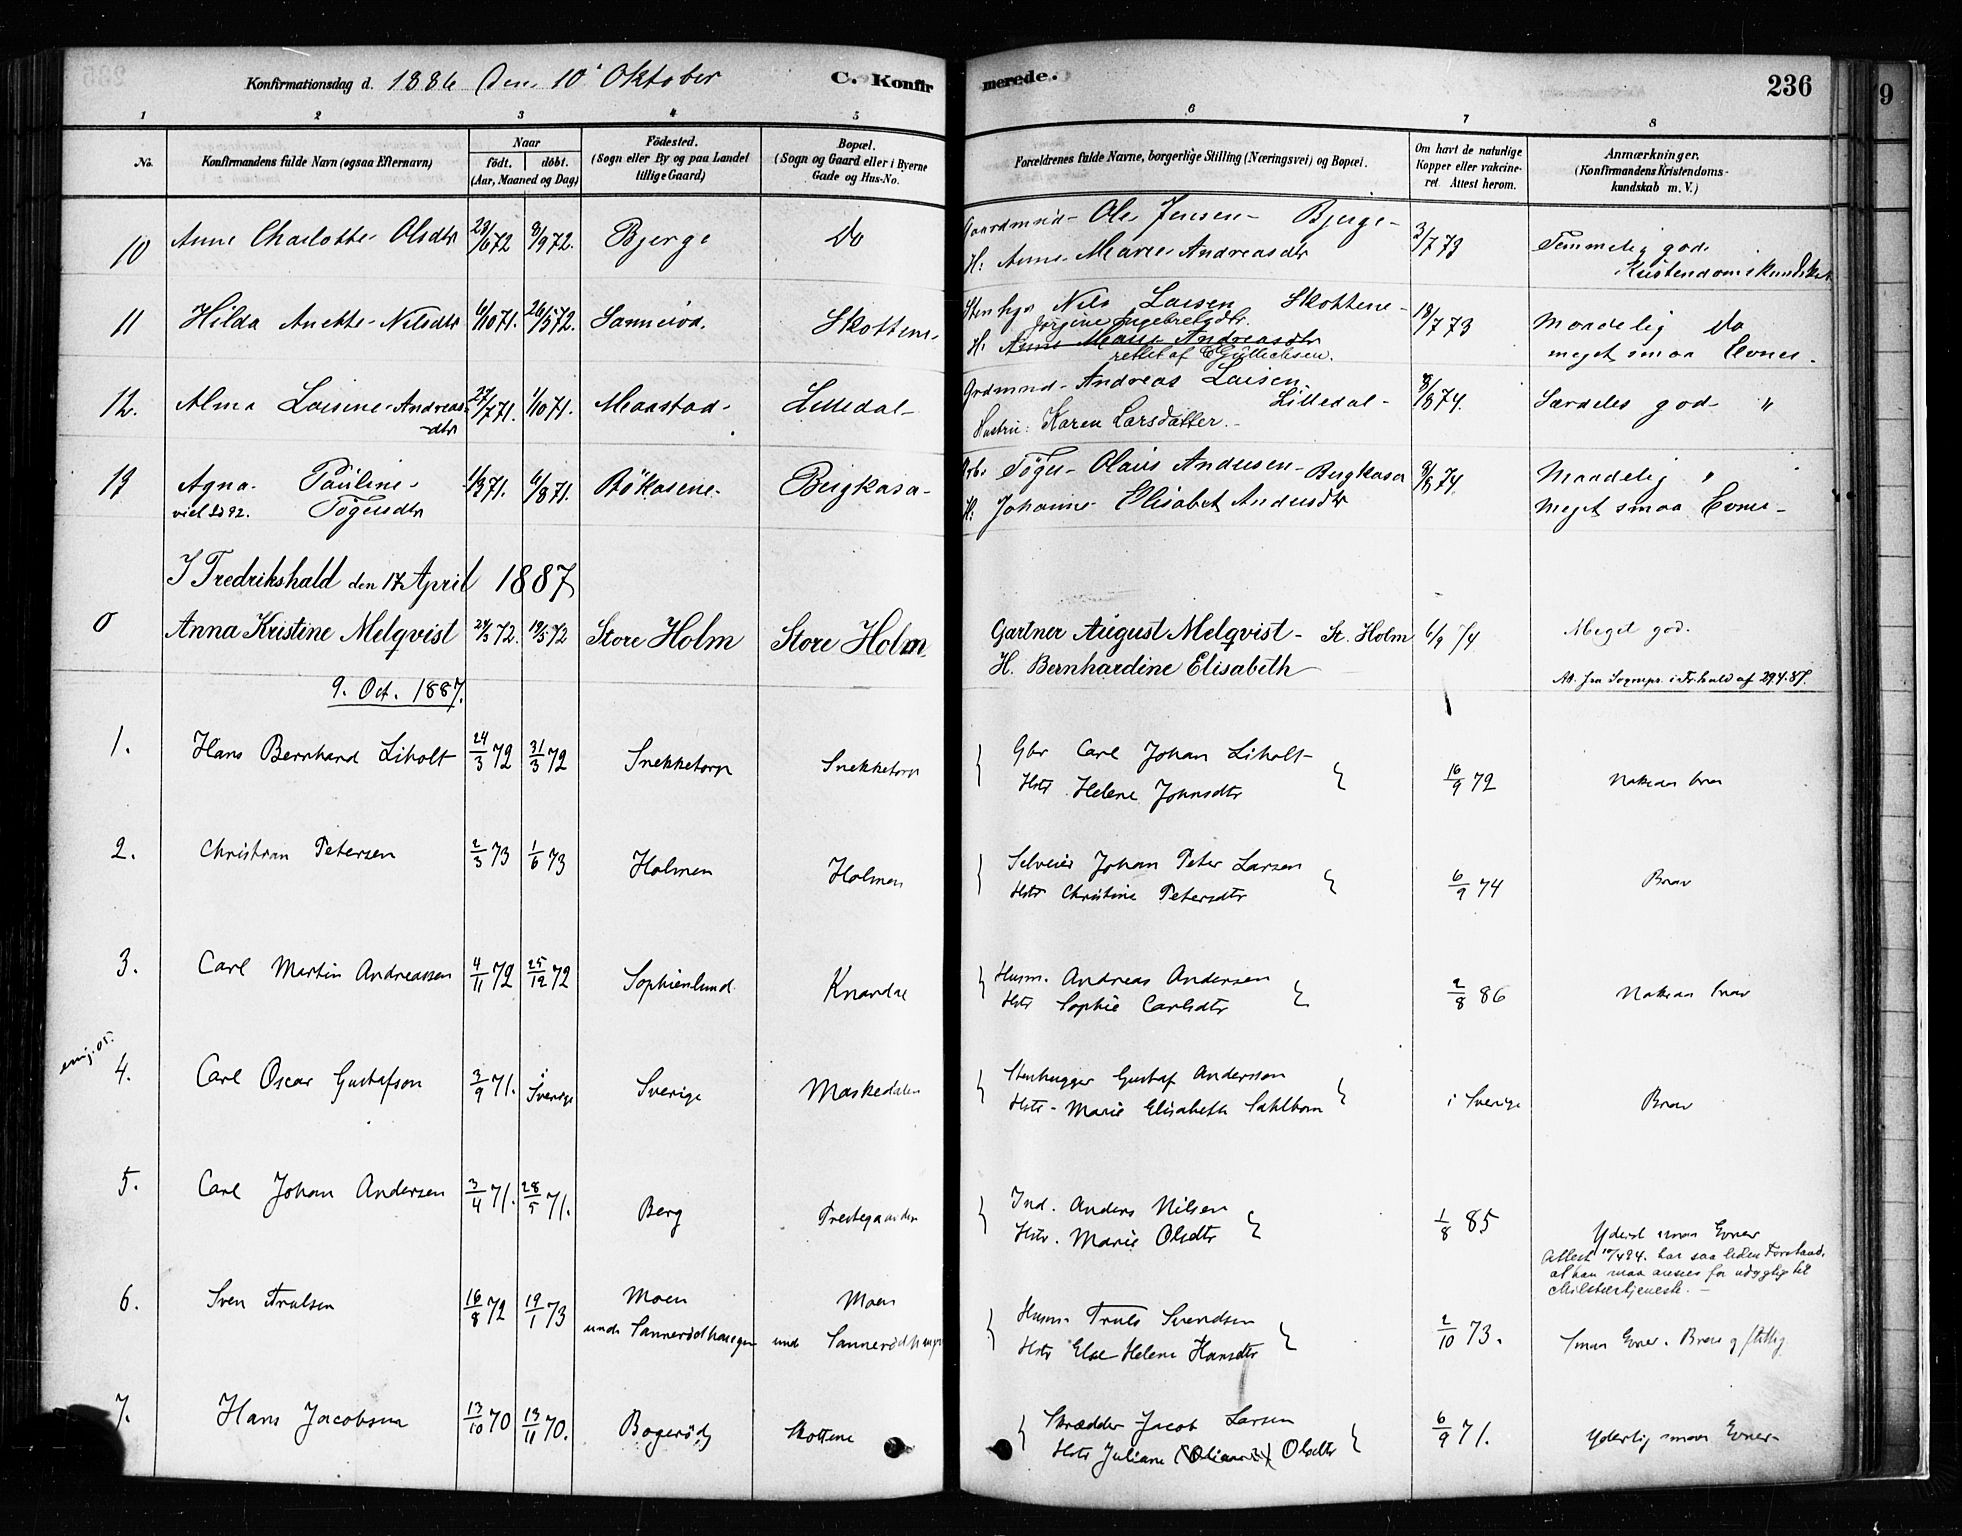 Konfirmationsdag d. 1886 den 10' Oktober C. Konfirmerede. 236
1 2 3 4 5 6 7 8
No. Konfirmandens fulde Navn (ogsaa Efternavn) Naar født, døbt. (Aar, Maaned og Dag) Födested. (Sogn eller By og paa Landet tillige Gaard) Bopæl. (Sogn og Gaard eller i Byerne Gade og Hus-No. Forældrenes fulde Navne, borgerlige Stilling (Næringsvei) og Bopæl. Om havt de naturlige Kopper eller vakcineret. Attest herom. Anmærkninger. (Konfirmandens Kristendomskundskab m. V.)
10 Anne Charlotte Olsdtr 28/6 72 8/9 72. Bjerge Do Gaardmnd- Ole Jensen- Bjerge- 3/7 73 Temmelig god
H: Anne Marie Andreasdtr Kristendomskundskab
11 Hilda Anette Nilsdtr 6/10 71. 26/5 72. Sanneröd. Skottene Stenhgr Nils Larsen Skottene- 18/7 73 Maadelig do
Jörgine Ingebretsdtr.
H: Anne Marie Andreasdtr meget smaa Evner.
rettet af E Gulliksen.
12. Alma Lovise Andreas- 27/7 71. 1/10 71. Maastad- Lilledal- Grdmnd- Andreas Larsen 8/8 74. Særdeles god "
-dtr Lilledal-
Hustru: Karen Larsdatter.
13 Agna Pauline 1/3 71. 6/8 71. Bökasene- Bergkasa- Arb: Töger Olaus Andersen- Bergkasa 8/8 74. Maadelig "
viet 20 92. Tögersdtr H: Johanne Elisabet Andersdtr Meget smaa Evner-
I Fredrikshald den 17 April 1887
0 Anna Kristine Melqvist 24/3 72. 19/5 72 Store Holm Store Holm Gartner August Melqvist- St. Holm 6/9 74 Meget god.
H. Bernhardine Elisabeth Att. fra Sognepr. i Fr.hald af 29.4.87.
9. Oct. 1887.
1. Hans Bernhard Liholt 24/3 72 31/3 72 Snekketorp Snekketorp Gbr Carl Johan Liholt
Hstr. Helene Johnsdtr 16/9 72
2. Christian Petersen 2/3 73 1/6 73 Holmen Holmen Selveier Johan Peter Larsen Brav
Hstr Christine Petersdtr 6/9 74
3. Carl Martin Andreassen 4/11 72 25/12 72 Sophienlund Knardal Husm. Andreas Andersen
Hstr Sophie Carlsdtr 2/8 86
emig. 05.
4. Carl Oscar Gustafson 3/9 71. i Sverige Sverige Maskedalen Stenhugger Gustaf Andersson
Hstr- Marie Elisabeth Sahlbom i Sverige Brav
5. Carl Johan Andersen 3/4 71. 28/5 71. Berg Prestegaarden Ind. Anders Nilsen
Hstr. Marie Olsdtr 1/8 85 Yderst smaa Evner
Attest har saa liden Forstand,
at han maa ansees for udygtig til
Militærtjeneste.-
6. Sven Trulsen 16/8 72 19/1 73 Moen Moen Husm. Truls Svendsen
under Sannerödhaugen under Sannerödhaugen Hstr Else Helene Hansdtr 2/10 73. Smaa Evner. Brav og flittig
7. Hans Jacobsen 13/10 70 13/11 70. Bogeröd Skottene Skrædder Jacob Larsen
Hstr Juliane (Oliane) Olsdtr 6/9 71. Yderlig smaa Evner-